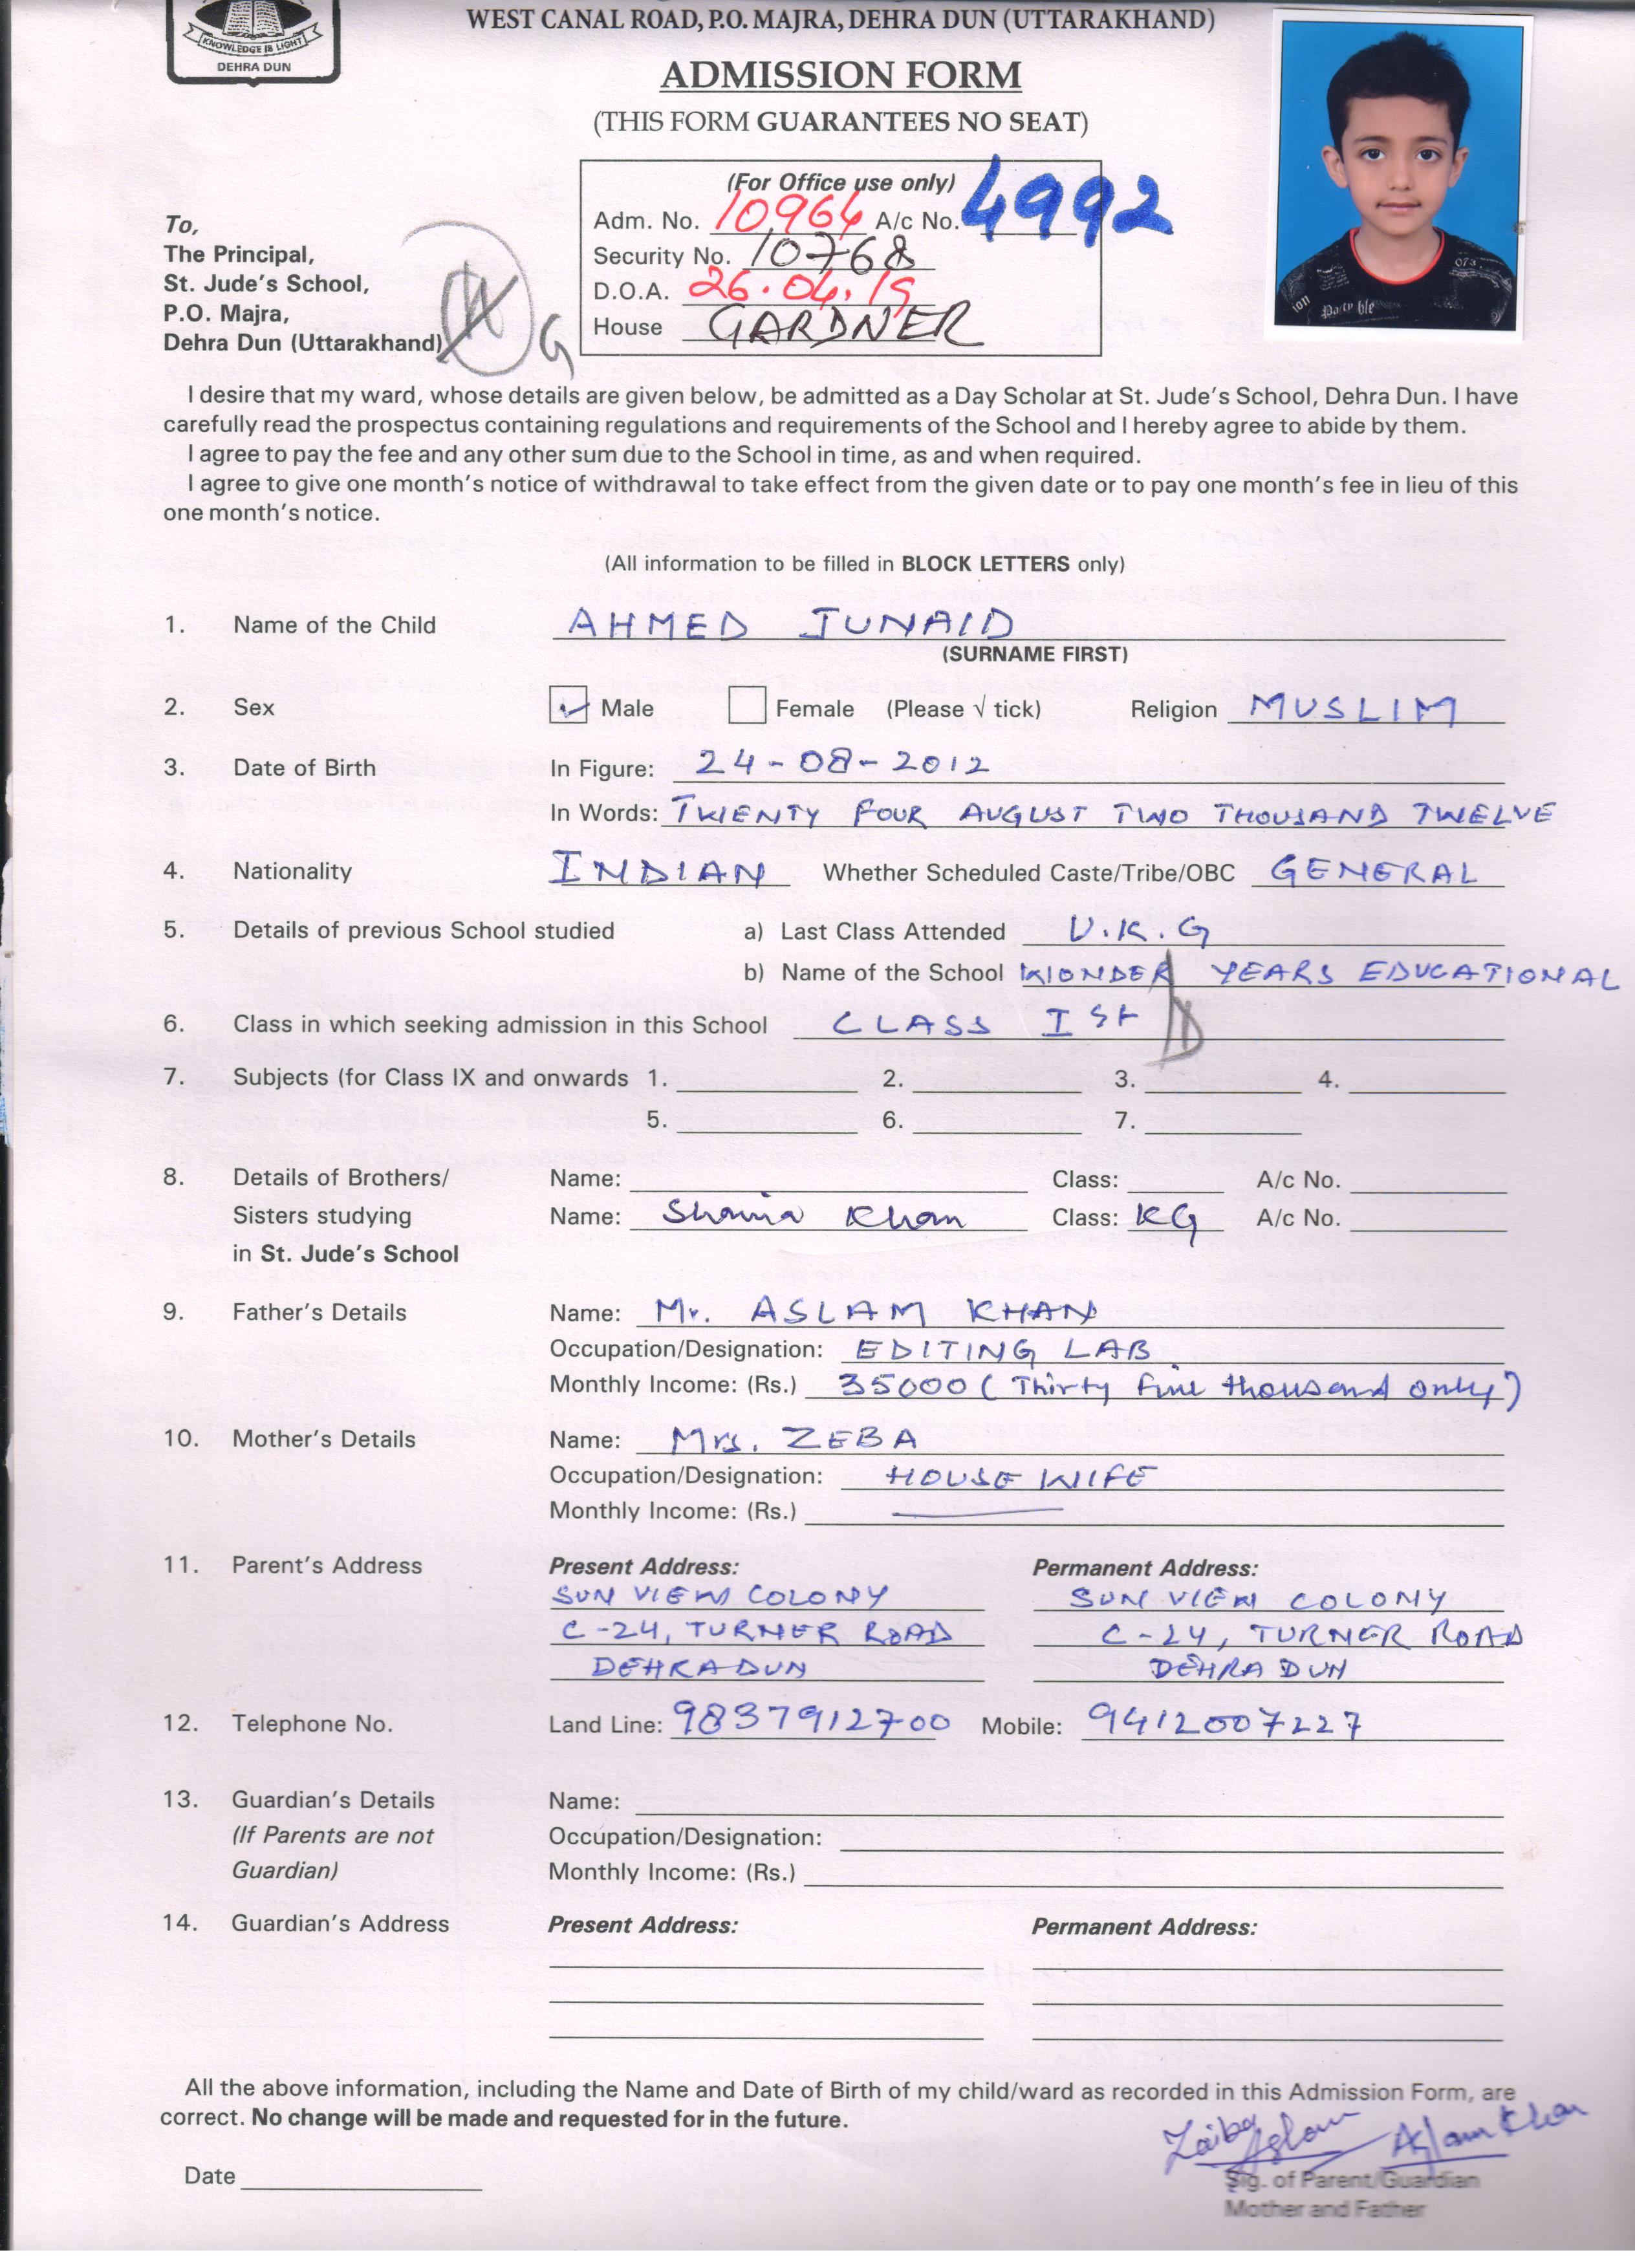 KNOWLEDGE IS LIGHT
DEHRA DUN
WEST CANAL ROAD, P.O. MAJRA, DEHRA DUN (UTTARAKHAND)
ADMISSION FORM
(THIS FORM GUARANTEES NO SEAT)
(For Office use only)
Adm. No. 10964 A/c No. 4992
Security No. 10768
D.O.A. 26.04.19
House GARDNER
To,
The Principal,
St. Jude's School,
P.O. Majra,
Dehra Dun (Uttarakhand)
G
I desire that my ward, whose details are given below, be admitted as a Day Scholar at St. Jude's School, Dehra Dun. I have
carefully read the prospectus containing regulations and requirements of the School and I hereby agree to abide by them.
I agree to pay the fee and any other sum due to the School in time, as and when required.
I agree to give one month's notice of withdrawal to take effect from the given date or to pay one month's fee in lieu of this
one month's notice.
(All information to be filled in BLOCK LETTERS only)
1. Name of the Child AHMED JUNAID
(SURNAME FIRST)
2. Sex Male Female (Please √ tick) Religion MUSLIM
3. Date of Birth In Figure: 24-08-2012
In Words: TWENTY FOUR AUGUST TWO THOUSAND TWELVE
4. Nationality INDIAN Whether Scheduled Caste/Tribe/OBC GENERAL
5. Details of previous School studied a) Last Class Attended U.K.G
b) Name of the School WONDER YEARS EDUCATIONAL
6. Class in which seeking admission in this School CLASS I St D
7. Subjects (for Class IX and onwards 1. 2. 3. 4.
5. 6. 7.
8. Details of Brothers/ Name: Class: A/c No.
Sisters studying Name: Khan Class: KG A/c No.
in St. Jude's School
9. Father's Details Name: Mr. ASLAM KHAN
Occupation/Designation: EDITING LAB
Monthly Income: (Rs.) 35000 (Thirty five thousand only)
10. Mother's Details Name: Mrs. ZEBA
Occupation/Designation: HOUSE WIFE
Monthly Income: (Rs.)
11. Parent's Address Present Address: Permanent Address:
SUN VIEW COLONY SUN VIEW COLONY
C-24, TURNER ROAD C-24, TURNER ROAD
DEHRADUN DEHRA DUN
12. Telephone No. Land Line: 9837912700 Mobile: 9412007227
13. Guardian's Details Name:
(If Parents are not Occupation/Designation:
Guardian) Monthly Income: (Rs.)
14. Guardian's Address Present Address: Permanent Address:
All the above information, including the Name and Date of Birth of my child/ward as recorded in this Admission Form, are
correct. No change will be made and requested for in the future.
Zaiba Aslam Aslam Khan
Date Sig. of Parent/Guardian
Mother and Father